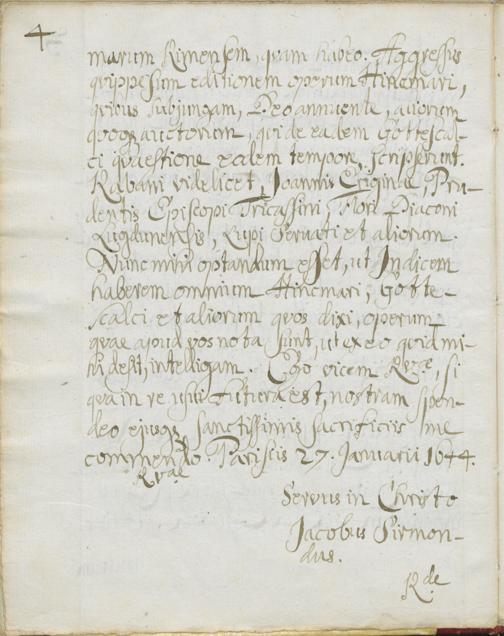 4
marum Rimensem, quam habeo. Aggressus
quippe sum editionem operum Hincmari,
quibus subjungam, Deo annuente, aliorum
quoq auctorum, qui de eadem Gottescal-
ci quaestione eadem tempore, scripserunt.
Rabani videlicet, Joannis Eriginae, Pru-
dentis Episcopi Tricassini, Flori Diaconi
Lugdunensis, Lupi Servati et aliorum.
Nunc mihi optandum esset, ut Indicem
haberem omnium Hincmari, Gotte-
scalci et aliorum quos dixi, operum
quae apud vos nota sunt, ut ex eo quid mi-
hi desit, intelligam. Ego vicem Rvae, si
qua in re usui futura est, nostram spon-
deo ejusq sanctissimis sacrificiis me
commendo Parisiis 27. Januarii 1644.
Rvae
Servus in Christo
Jacobus Sirmon-
dus.
Rde